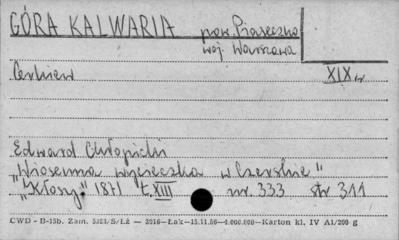 GÓRA KALWARIA pow. Piaseczno
woj. Warszawa
XIX w
Edward Chłopicki
"Wiosenna wycieczka w Czerskie"
"Kłosy" 1871 t. XIII nr. 333 str 311
CWD - B-15b. Zam. /S/Łż — 2016—Łak—15.11.56—4.000.000—Karton kl. IV A1/200 g